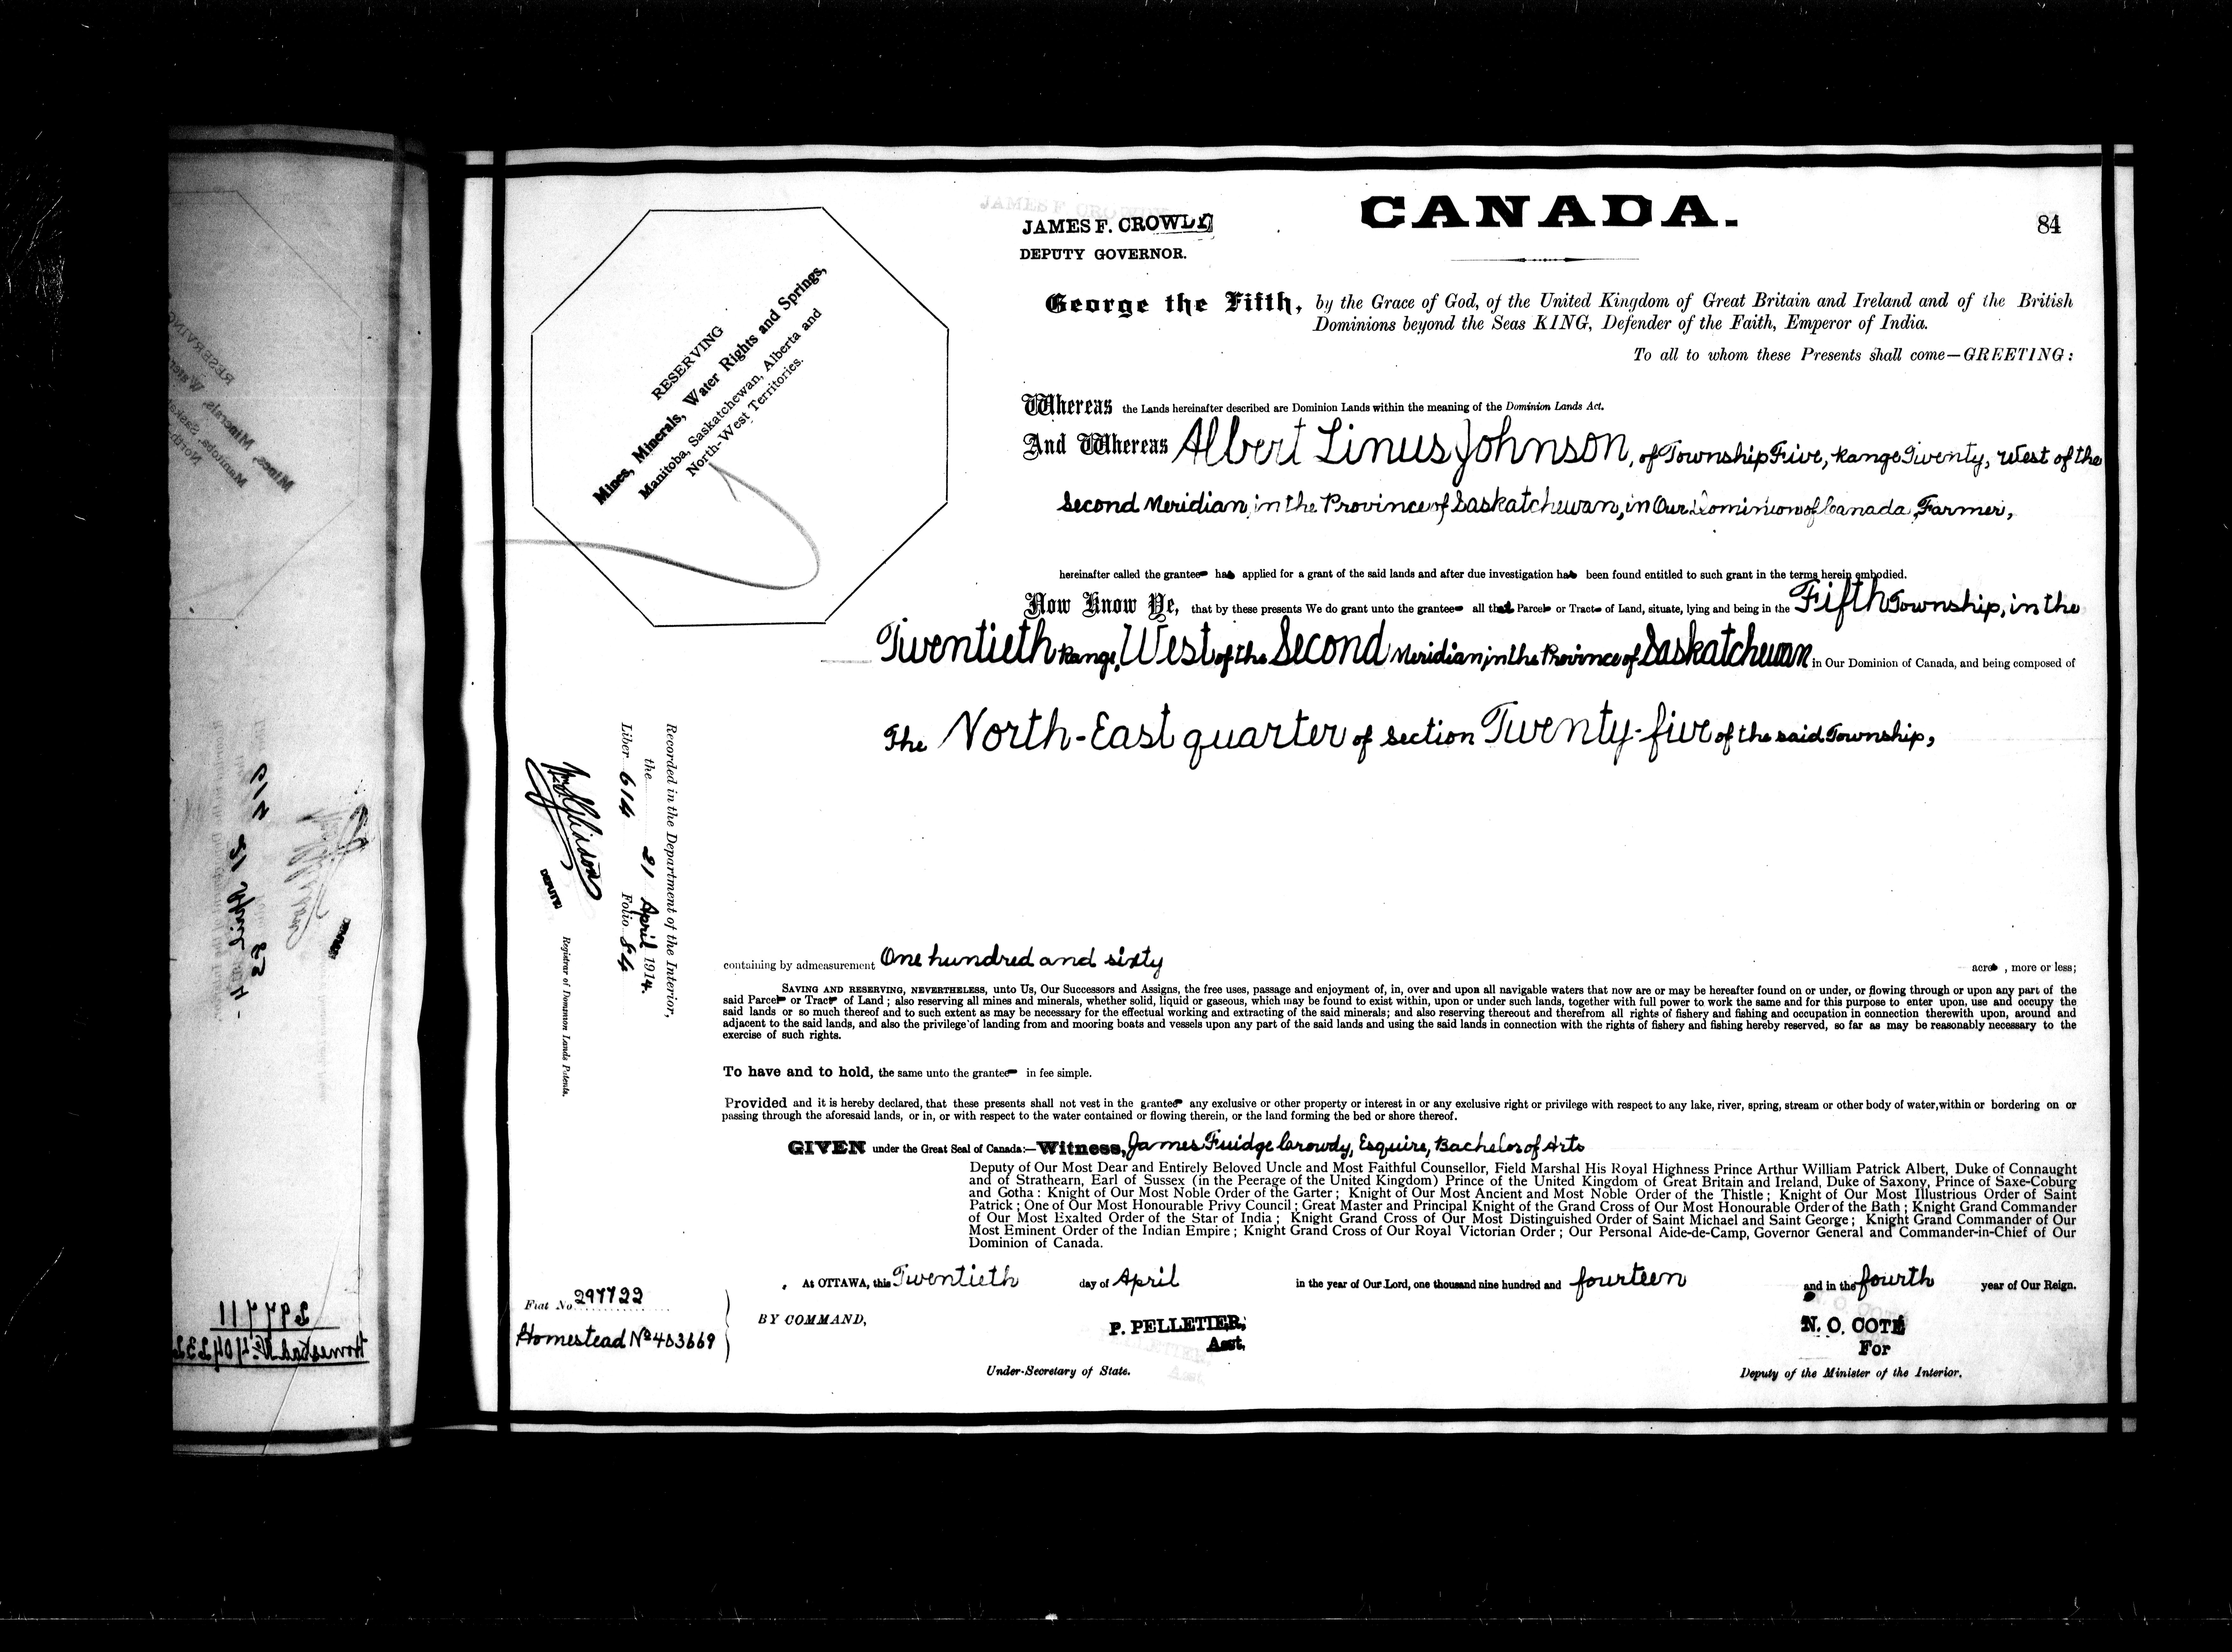 CANADA.
84
JAMES F. CROWDY
DEPUTY GOVERNOR.
George the Fifth, by the Grace of God, of the United Kingdom of Great Britain and Ireland and of the British
Dominions beyond the Seas KING, Defender of the Faith, Emperor of India.
To all to whom these Presents shall come—GREETING:
RESERVING
Mines, Minerals, Water Rights and Springs,
Manitoba, Saskatchewan, Alberta and
North-West Territories.
Whereas the Lands hereinafter described are Dominion Lands within the meaning of the Dominion Lands Act.
And Whereas Albert Linus Johnson, of Township Five, Range Twenty, West of the
Second Meridian, in the Province of Saskatchewan, in Our Dominion of Canada, Farmer,
hereinafter called the grantee has applied for a grant of the said lands and after due investigation has been found entitled to such grant in the terms herein embodied.
Now Know Ye, that by these presents We do grant unto the grantee all that Parcel or Tract of Land, situate, lying and being in the Fifth Township, in the
Twentieth Range, West of the Second Meridian, in the Province of Saskatchewan in Our Dominion of Canada, and being composed of
The North-East quarter of section Twenty-five of the said Township,
Recorded in the Department of the Interior,
the 21 April 1914.
Liber 614 Folio 84
DEPUTY
Registrar of Dominion Lands Patents.
containing by admeasurement One hundred and sixty acres, more or less;
SAVING AND RESERVING, NEVERTHELESS, unto Us, Our Successors and Assigns, the free uses, passage and enjoyment of, in, over and upon all navigable waters that now are or may be hereafter found on or under, or flowing through or upon any part of the
said Parcel or Tract of Land; also reserving all mines and minerals, whether solid, liquid or gaseous, which may be found to exist within, upon or under such lands, together with full power to work the same and for this purpose to enter upon, use and occupy the
said lands or so much thereof and to such extent as may be necessary for the effectual working and extracting of the said minerals; and also reserving thereout and therefrom all rights of fishery and fishing and occupation in connection therewith upon, around and
adjacent to the said lands, and also the privilege of landing from and mooring boats and vessels upon any part of the said lands and using the said lands in connection with the rights of fishery and fishing hereby reserved, so far as may be reasonably necessary to the
exercise of such rights.
To have and to hold, the same unto the grantee in fee simple.
Provided and it is hereby declared, that these presents shall not vest in the grantee any exclusive or other property or interest in or any exclusive right or privilege with respect to any lake, river, spring, stream or other body of water, within or bordering on or
passing through the aforesaid lands, or in, or with respect to the water contained or flowing therein, or the land forming the bed or shore thereof.
GIVEN under the Great Seal of Canada:—Witness, James Fuidge Crowdy, Esquire, Bachelor of Arts
Deputy of Our Most Dear and Entirely Beloved Uncle and Most Faithful Counsellor, Field Marshal His Royal Highness Prince Arthur William Patrick Albert, Duke of Connaught
and of Strathearn, Earl of Sussex (in the Peerage of the United Kingdom) Prince of the United Kingdom of Great Britain and Ireland, Duke of Saxony, Prince of Saxe-Coburg
and Gotha: Knight of Our Most Noble Order of the Garter; Knight of Our Most Ancient and Most Noble Order of the Thistle; Knight of Our Most Illustrious Order of Saint
Patrick; One of Our Most Honourable Privy Council; Great Master and Principal Knight of the Grand Cross of Our Most Honourable Order of the Bath; Knight Grand Commander
of Our Most Exalted Order of the Star of India; Knight Grand Cross of Our Most Distinguished Order of Saint Michael and Saint George; Knight Grand Commander of Our
Most Eminent Order of the Indian Empire; Knight Grand Cross of Our Royal Victorian Order; Our Personal Aide-de-Camp, Governor General and Commander-in-Chief of Our
Dominion of Canada.
At OTTAWA, this Twentieth day of April in the year of Our Lord, one thousand nine hundred and fourteen and in the fourth year of Our Reign.
Fiat No. 297722
Homestead No 453669
BY COMMAND,
P. PELLETIER,
Asst.
Under-Secretary of State.
N. O. COTÉ
For
Deputy of the Minister of the Interior.
297711
Homestead No 404232